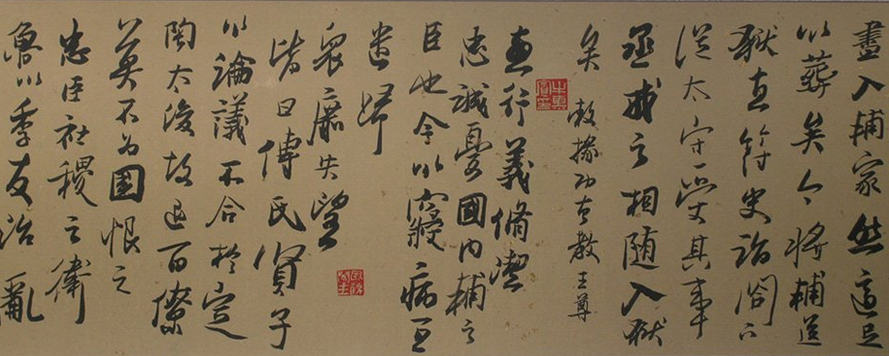 盡入輔家然適足
以葬矣今將輔送
獄直符史詣閤下
從太守受其事
丞戒之相隨入獄
矣
敕掾功曹教王尊
喜行義脩潔
忠誠憂國內輔之
臣也今以寢病一旦
遣歸
衆庶失望
皆曰傅氏賢子
以論議不合於定
陶太後故退百僚
莫不為國恨之
忠臣社稷之衛
魯以季友治亂